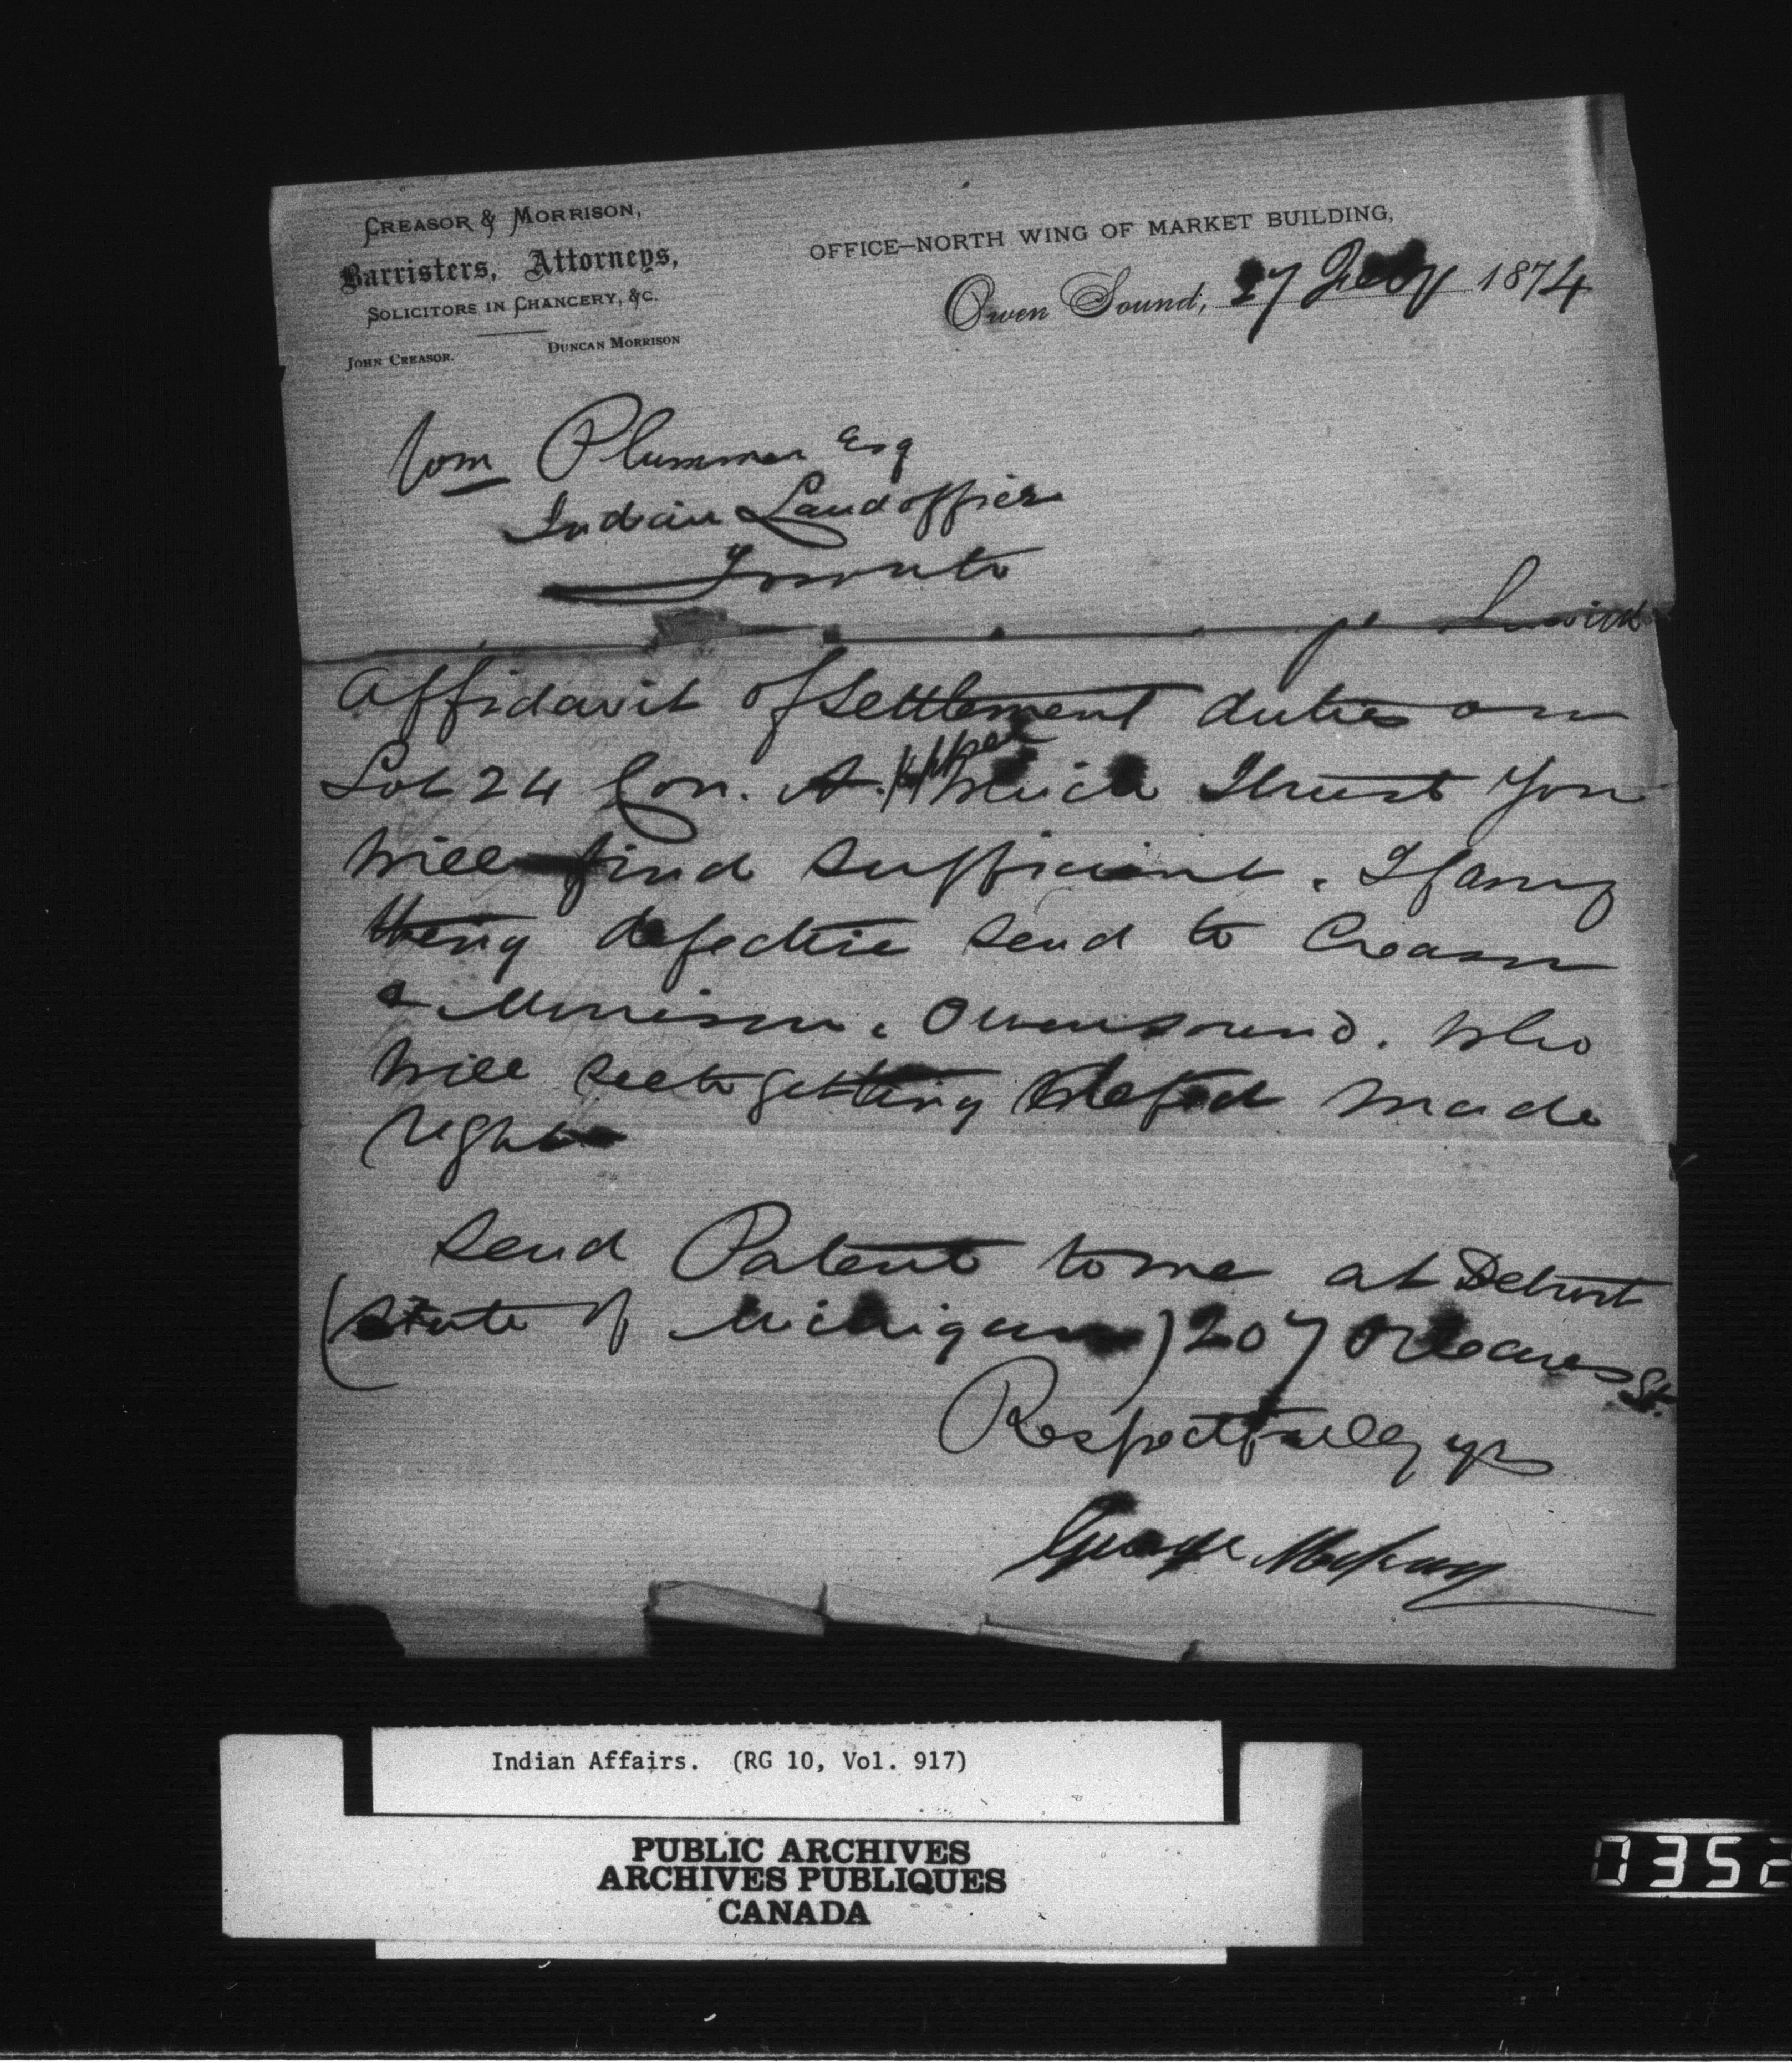 CREASOR & MORRISON,
Barristers, Attorneys,
SOLICITORS IN CHANCERY, &C.
JOHN CREASOR. DUNCAN MORRISON
OFFICE—NORTH WING OF MARKET BUILDING,
Owen Sound, 27 July 1874
Wm Plummer Esq
Indian Land office
Toronto
Affidavit of settlement duties on
Lot 24 Con. A. Keppel which I trust you
will find sufficient. If any
thing defective send to Creasor
& Morrison. Owensound. who
will see to getting made
right
Send Patent to me at Detroit
(State of Michigan) 207 Orleans St.
Respectfully yrs
George
Indian Affairs. (RG 10, Vol. 917)
PUBLIC ARCHIVES
ARCHIVES PUBLIQUES
CANADA
0352